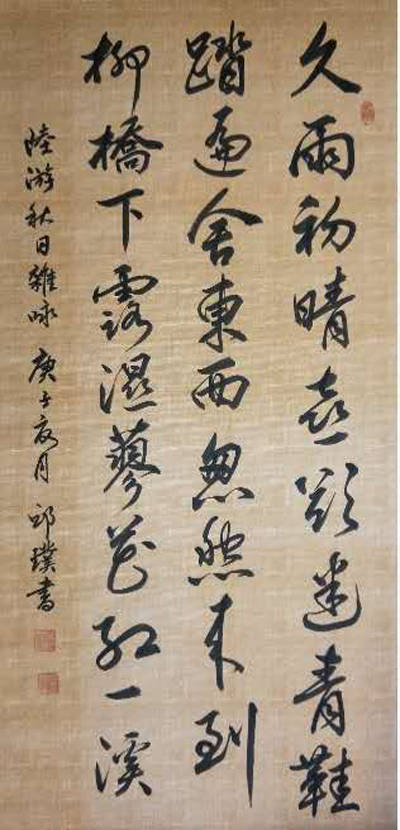 久雨初晴喜欲迷青鞋
踏遍舍東西忽然来到
柳橋下露濕蓼花紅一溪
陸游秋日雜咏 庚子夏月 邱璞書